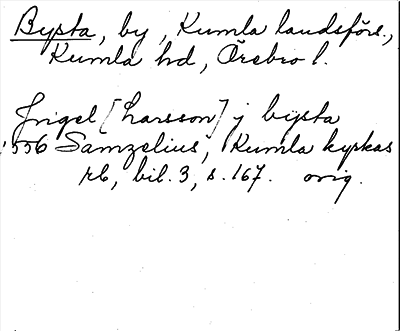 Bysta, by, Kumla landsförs.,
Kumla hd, Örebro l.
Ingel [Larsson] j bÿsta
1556 Samzelius, Kumla kyrkas
rb, bil. 3, s. 167. orig.